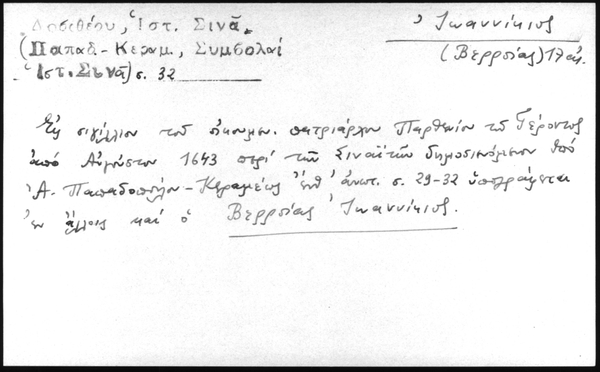 Δοσιθέου, Ἱστ. Σινᾶ.
(Παπαδ.-Κεραμ., Συμβολαί
Ἱστ. Σινᾶ) σ. 32
ὁ Ἰωαννίκιος
(Βερροίας) 17 αἰ.
Εἰς σιγίλλιον τοῦ οἰκουμεν. πατριάρχου Παρθενίου τοῦ Γέροντος
ἀπό Αὐγούστου 1643 περί τῶν Σιναϊτῶν δημοσιευόμενον ὑπό
Ἀ. Παπαδοπούλου-Κεραμέως ἐνθ' ἀνωτ. σ. 29-32 ὑπογράφεται
ἐν ἄλλοις καί ὁ Βερροίας Ἰωαννίκιος.